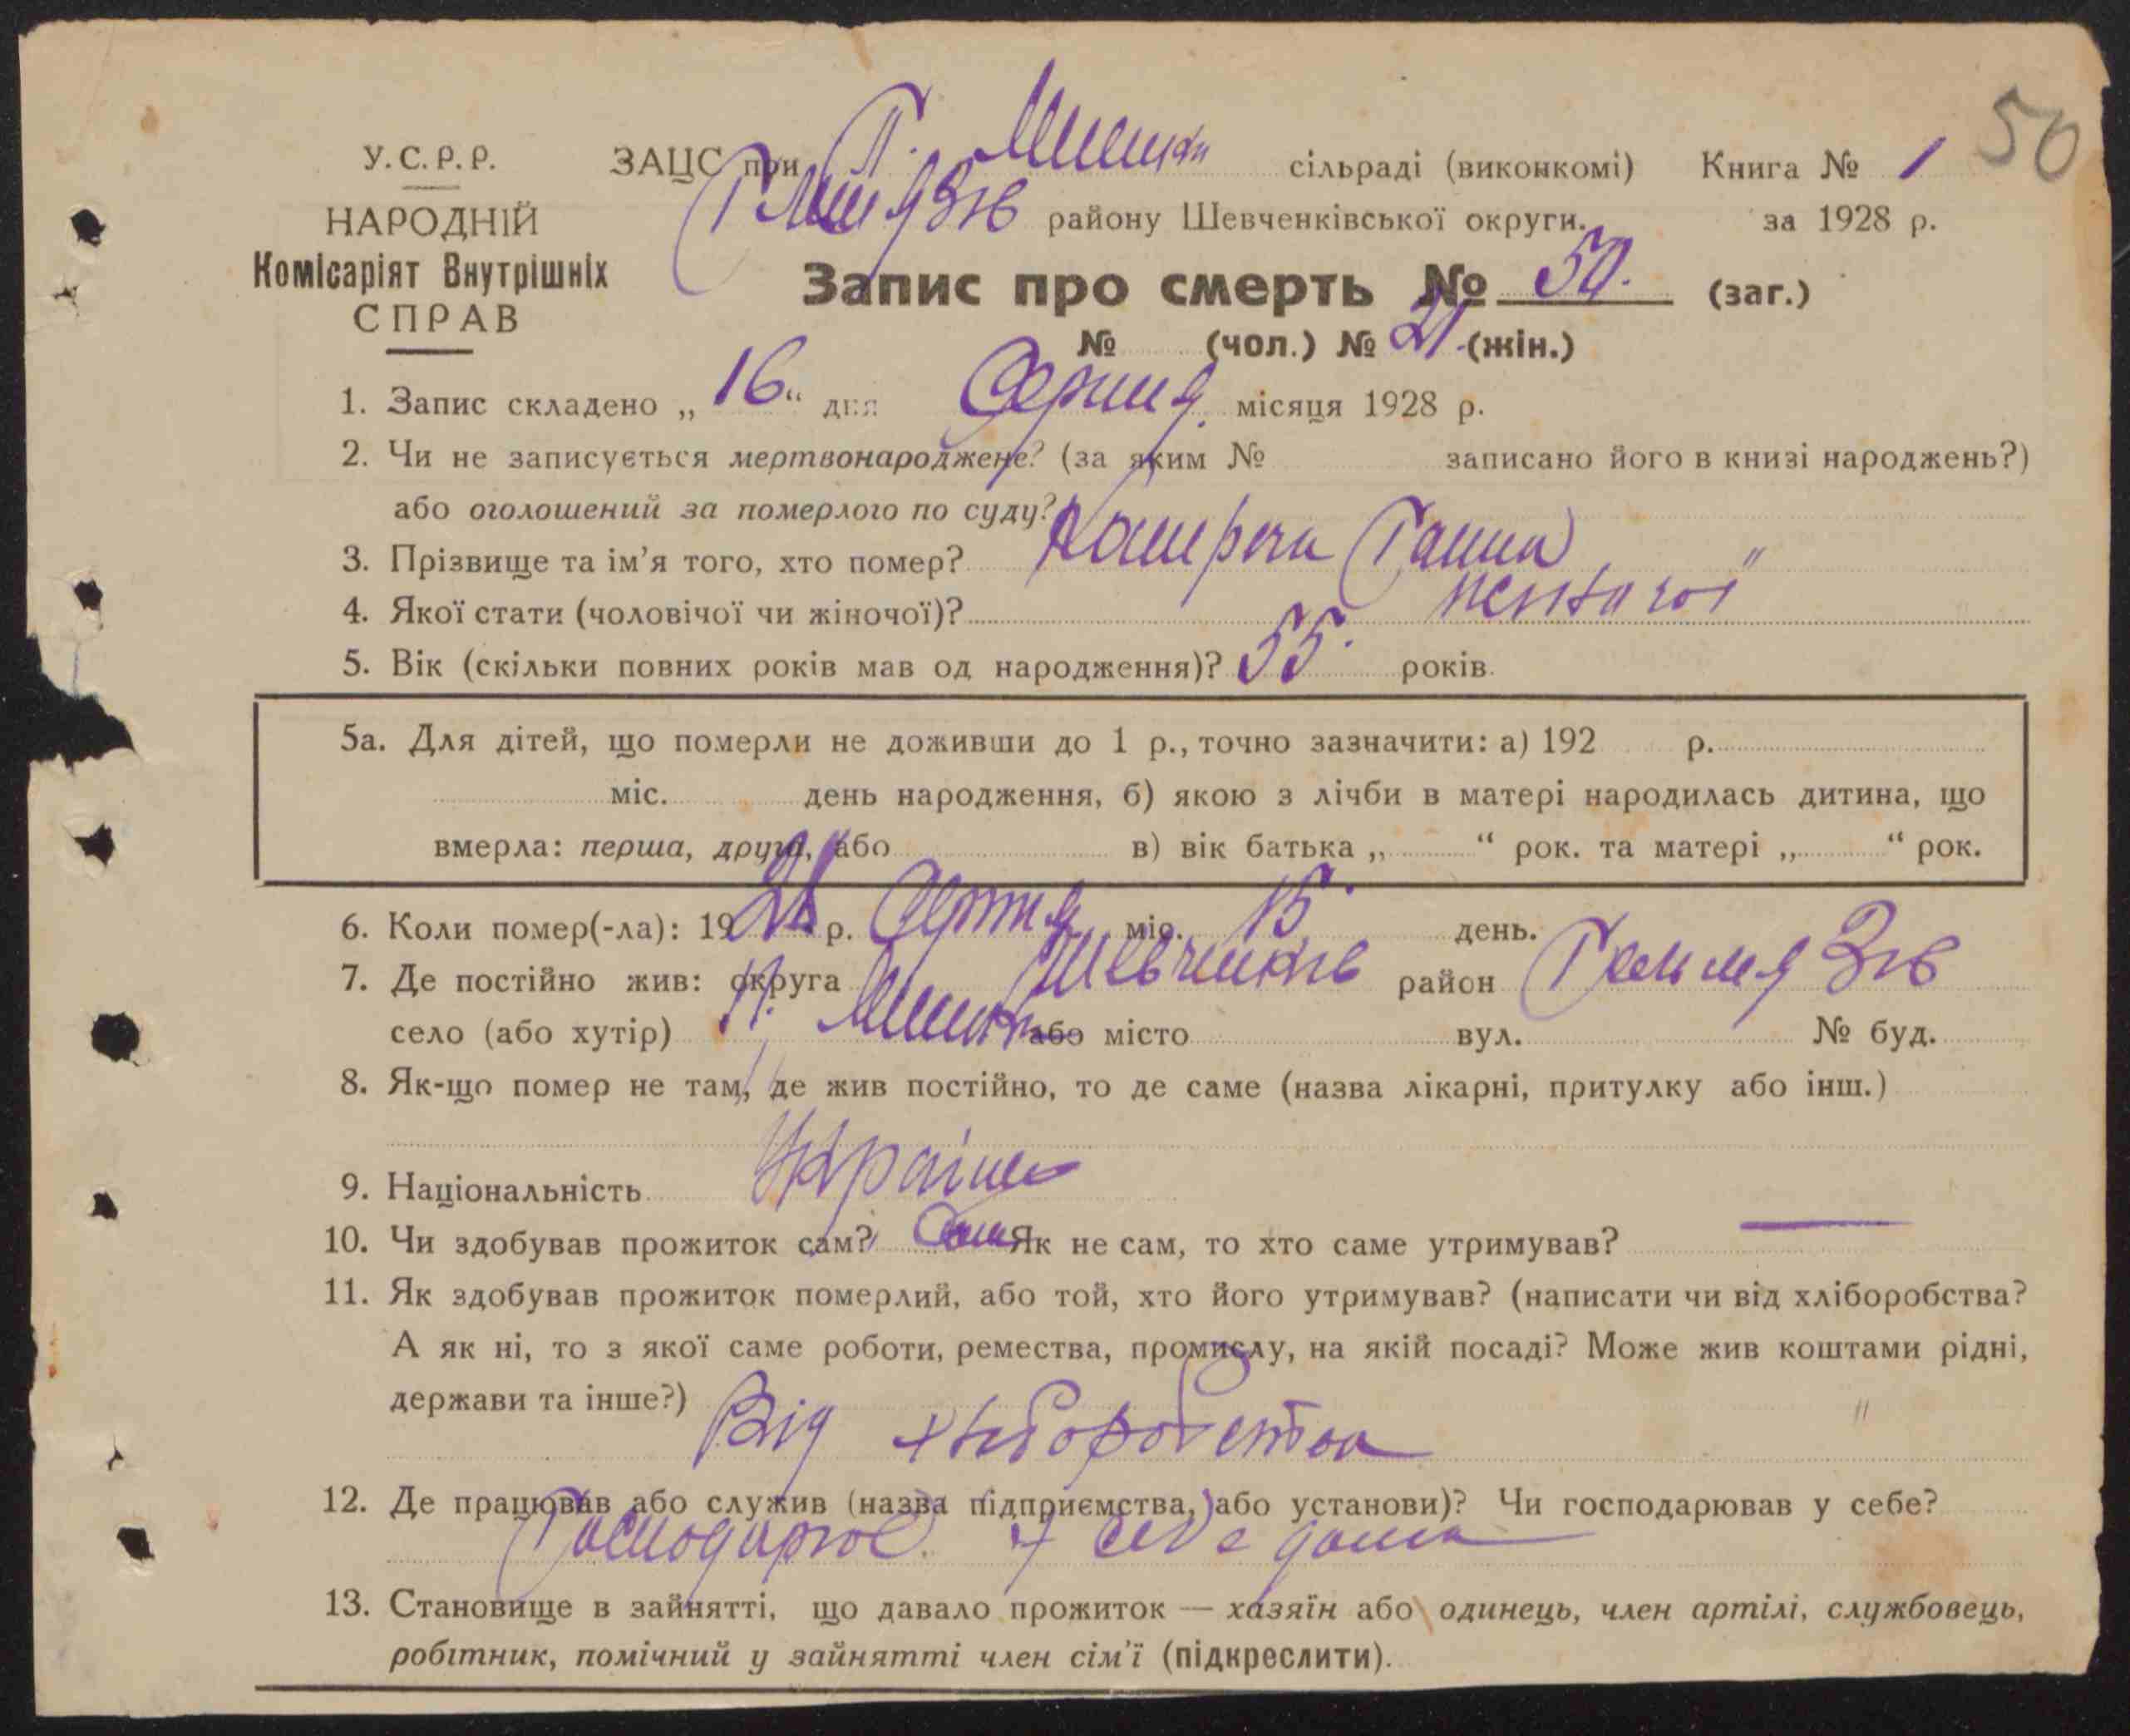 50
У.С.Р.Р. ЗАЦС при П. Мишки сільраді (виконкомі) Книга № 1
НАРОДНІЙ Гельмязів району Шевченківської округи. за 1928 р.
Комісаріят Внутрішніх
СПРАВ
Запис про смерть № 50. (заг.)
№ (чол.) № 21 (жін.)
1. Запис складено „ 16 “ дня Серпня місяця 1928 р.
2. Чи не записується мертвонароджене? (за яким № записано його в книзі народжень?)
або оголошений за померлого по суду?
3. Прізвище та ім'я того, хто помер? Ганна
4. Якої стати (чоловічої чи жіночої)?
5. Вік (скільки повних років мав од народження)? 55. років.
5а. Для дітей, що померли не доживши до 1 р., точно зазначити: а) 192 р.
міс. день народження, б) якою з лічби в матері народилась дитина, що
вмерла: перша, друга, або в) вік батька „ “ рок. та матері „ “ рок.
6. Коли помер(-ла): 1928 р. Серпня міс. 15. день.
7. Де постійно жив: округа Шевченків район Гельмязів
село (або хутір) П. Мишки або місто вул. № буд.
8. Як-що помер не там, де жив постійно, то де саме (назва лікарні, притулку або інш.)
9. Національність Україн
10. Чи здобував прожиток сам? Сам Як не сам, то хто саме утримував? —
11. Як здобував прожиток померлий, або той, хто його утримував? (написати чи від хліборобства?
А як ні, то з якої саме роботи, ремества, промислу, на якій посаді? Може жив коштами рідні,
держави та інше?) Від хліборобства
12. Де працював або служив (назва підприємства, або установи)? Чи господарював у себе?
Господарюв. у себе дома
13. Становище в зайнятті, що давало прожиток — хазяїн або одинець, член артілі, службовець,
робітник, помічний у зайнятті член сім'ї (підкреслити).